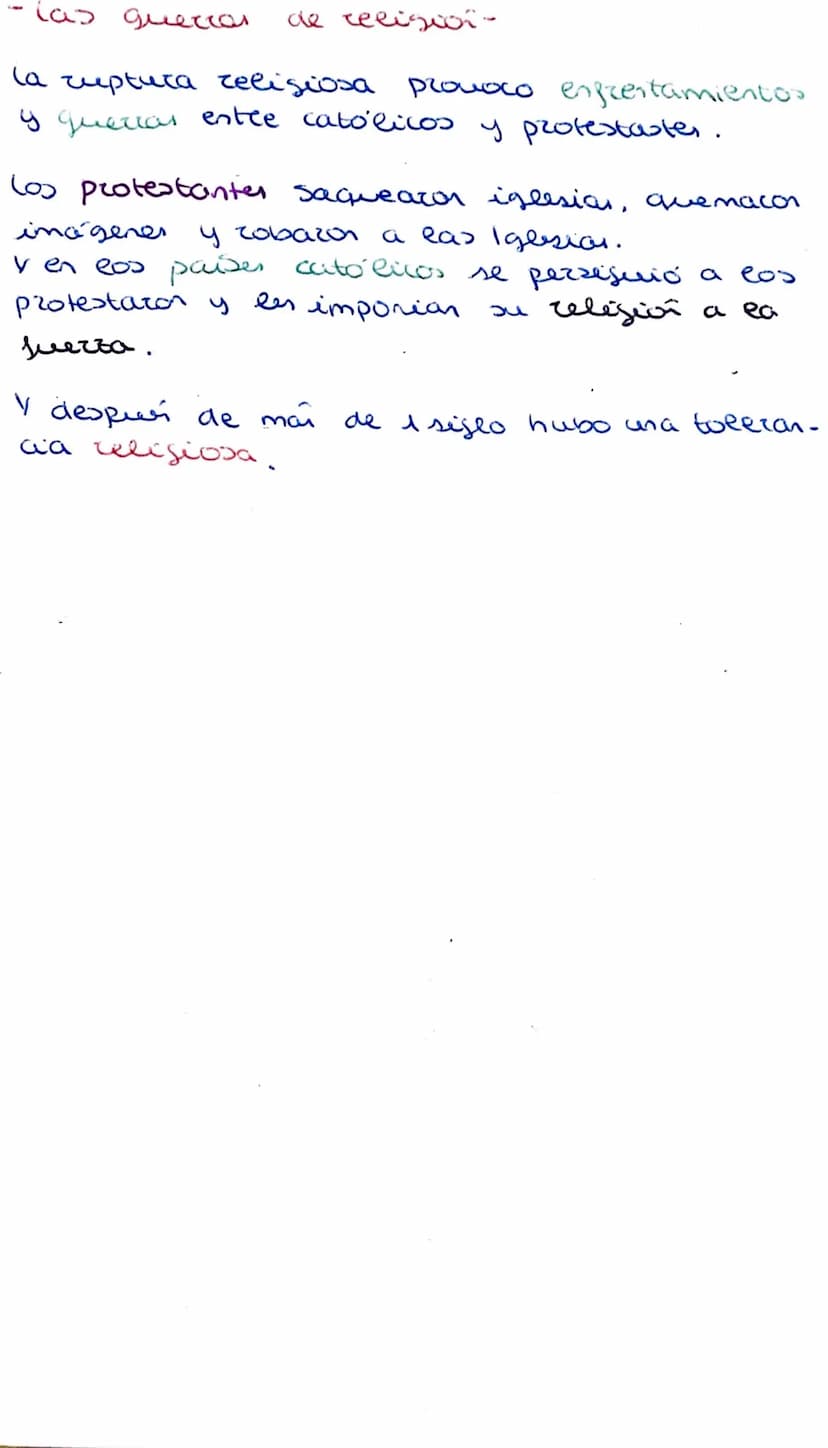 -las guerras de religión-
la ruptura religiosa provoco enfrentamientos
y guerras entre católicos y protestantes.
los protestantes saquearon iglesias, quemaron
imágenes y robaron a las Iglesias.
Y en los países católicos se persiguió a los
protestaron y les imponian su religión a la
fuerza.
Y después de más de 1 siglo hubo una toleran-
cia religiosa.